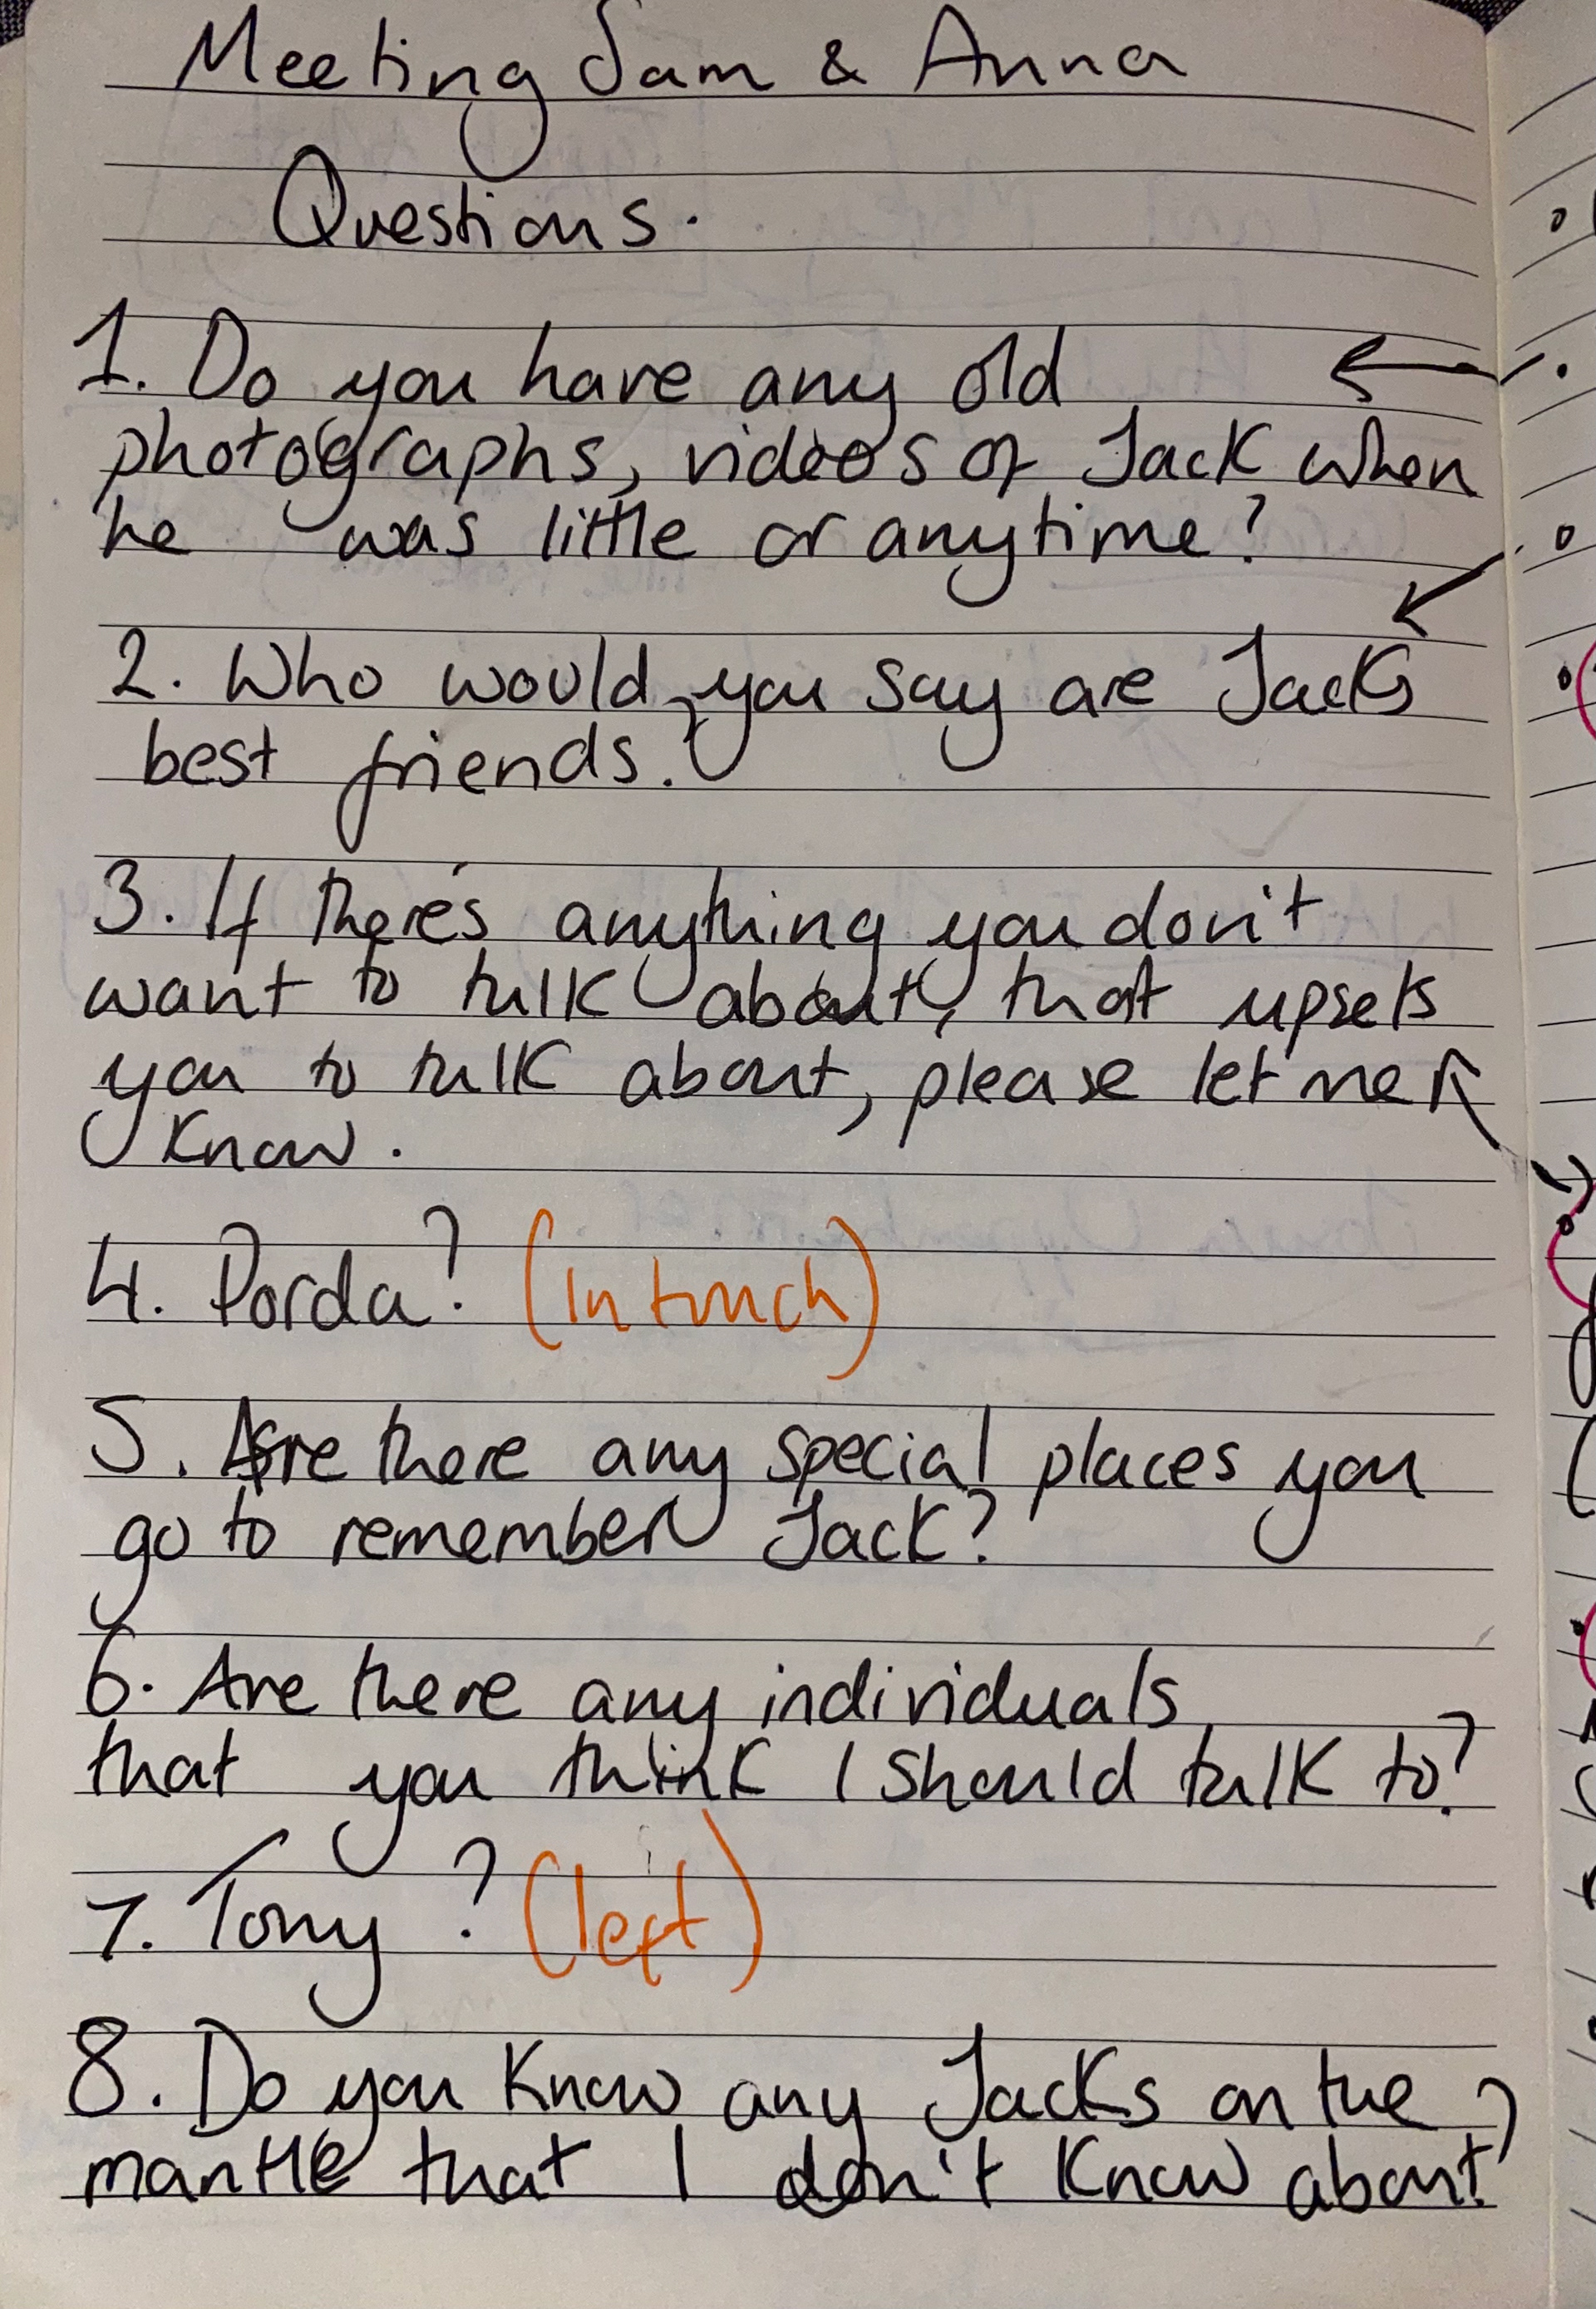 Meeting Sam & Anna
Questions.
1. Do you have any old
photographs, videos of Jack when
he was little or anytime?
2. Who would you say are Jacks
best friends.
3. If there's anything you don't
want to talk about, that upsets
you to talk about, please let me
know.
4. Porda? (in touch)
5. Are there any special places you
go to remember Jack?
6. Are there any individuals
that you think I should talk to?
7. Tony? (left)
8. Do you know any Jacks on the
mantle that I don't know about?